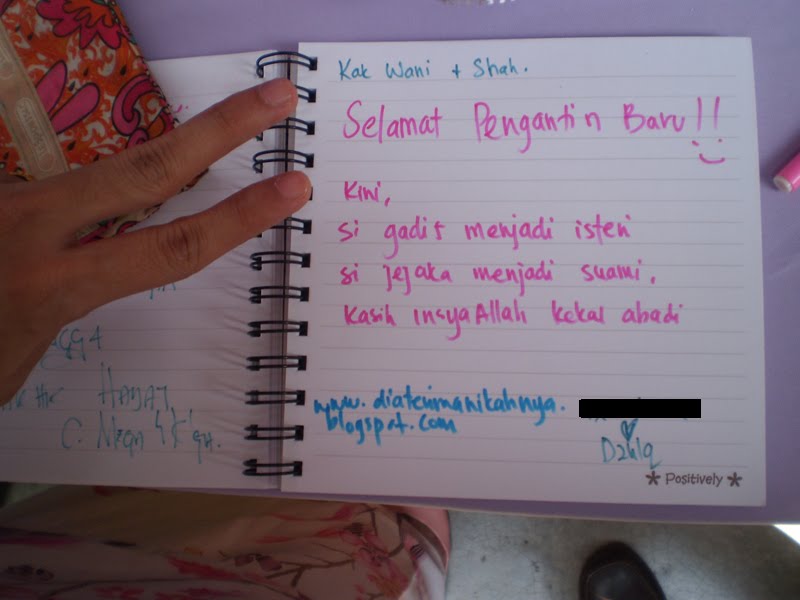 Kak Wani + Shah.
Selamat Pengantin Baru!!
Kini,
si gadis menjadi isteri
si jejaka menjadi suami,
kasih insyaAllah kekal abadi
www.diaterimanikahnya.
blogspot.com
Positively